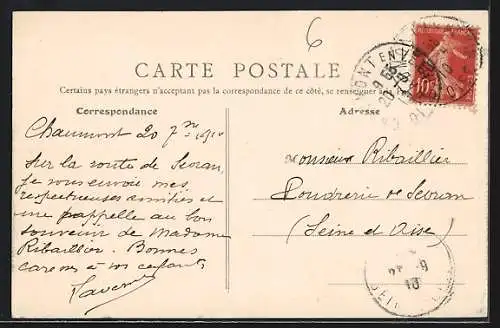 6
CARTE POSTALE
Certains pays étrangers n'acceptant pas la correspondance de ce côté, se renseigner à la
Correspondance
Adresse
REPUBLIQUE FRANÇAISE
10
Chaumont 20 7bre 1910
Sur la route de Sevran,
je vous envoie mes
respectueuses amitiés et
me rappelle au bon
souvenir de Madame
Ribaillier. Bonnes
caresses à vos enfants
Monsieur Ribaillier
Poudrerie de Sevran
(Seine et Oise)